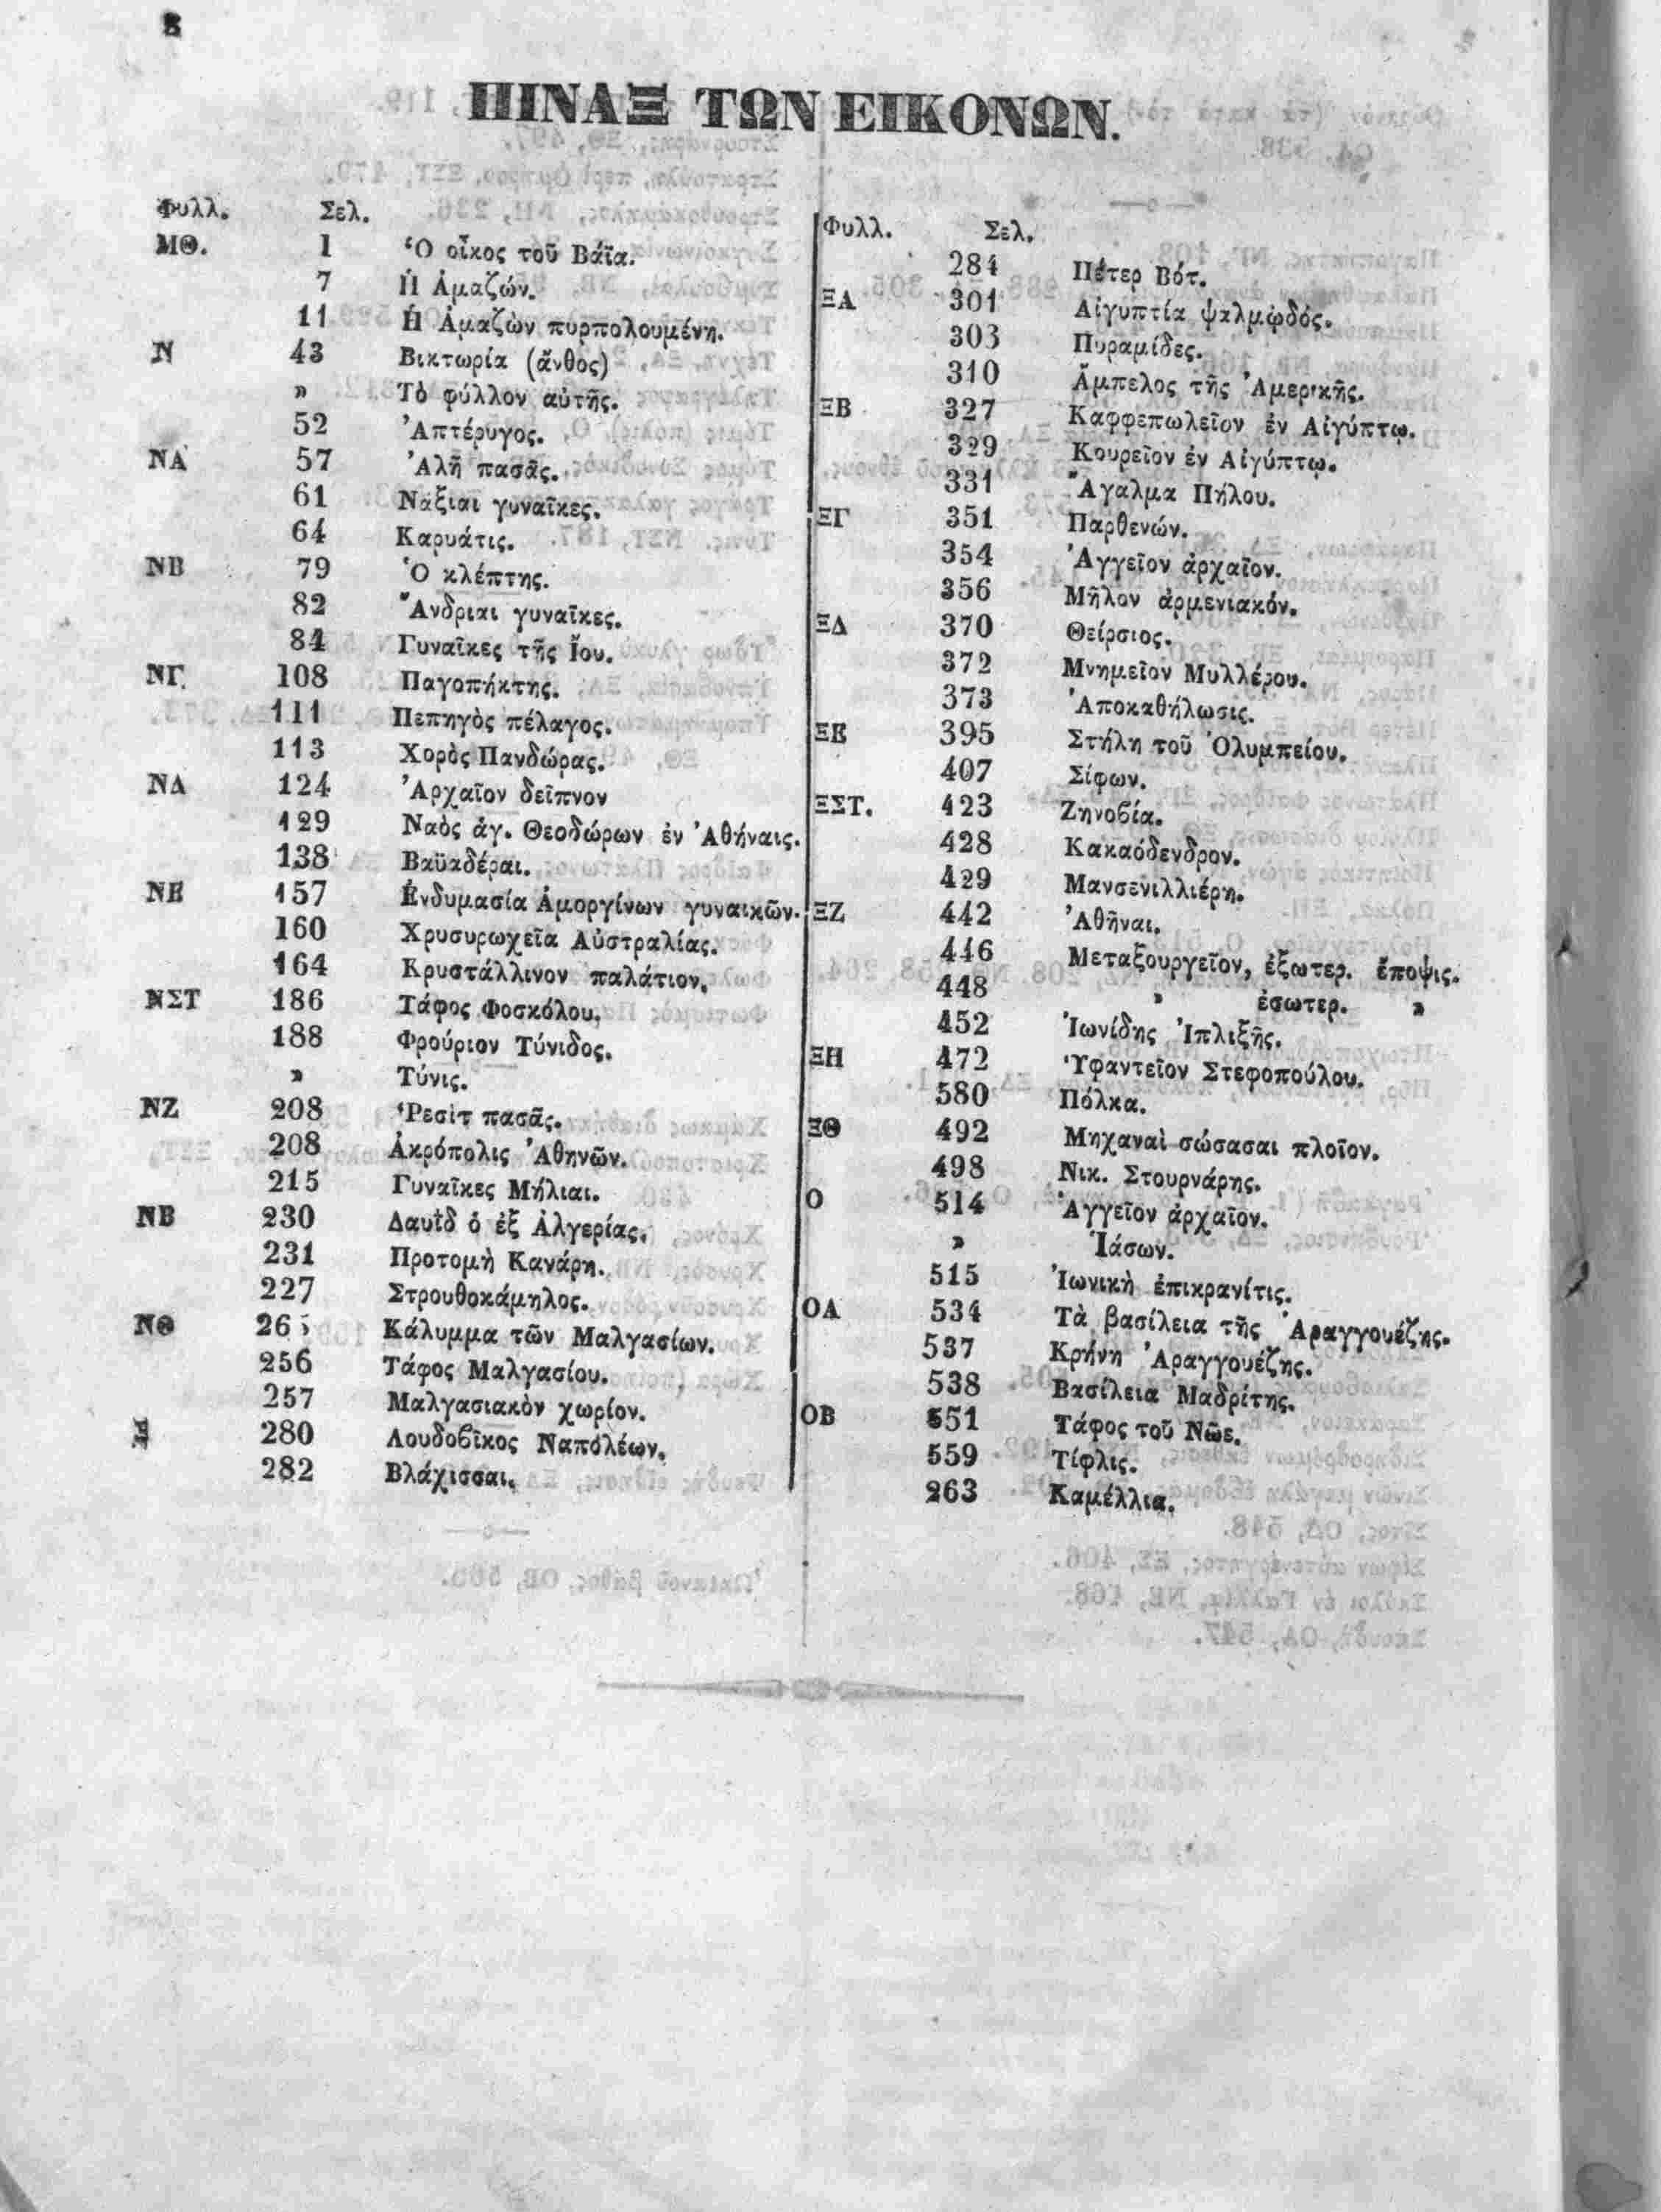 ΠΙΝΑΞ ΤΩΝ ΕΙΚΟΝΩΝ.
Φυλλ. Σελ.
ΜΘ. 1 Ὁ οἶκος τοῦ Βάϊα.
7 Ἡ Ἀμαζών.
11 Ἡ Ἀμαζὼν πυρπολουμένη.
Ν 43 Βικτωρία (ἄνθος)
» Τὸ φύλλον αὐτῆς.
52 Ἀπτέρυγος.
ΝΑ 57 Ἀλῆ πασᾶς.
61 Νάξιαι γυναῖκες.
64 Καρυάτις.
ΝΒ 79 Ὁ κλέπτης.
82 Ἄνδριαι γυναῖκες.
84 Γυναῖκες τῆς Ἴου.
ΝΓ 108 Παγοπήκτης.
111 Πεπηγὸς πέλαγος.
113 Χορὸς Πανδώρας.
ΝΔ 124 Ἀρχαῖον δεῖπνον
129 Ναὸς ἁγ. Θεοδώρων ἐν Ἀθήναις.
138 Βαϋαδέραι.
ΝΕ 157 Ἐνδυμασία Ἀμοργίνων γυναικῶν.
160 Χρυσυρωχεῖα Αὐστραλίας.
164 Κρυστάλλινον παλάτιον.
ΝΣΤ 186 Τάφος Φοσκόλου.
188 Φρούριον Τύνιδος.
» Τύνις.
ΝΖ 208 Ῥεσὶτ πασᾶς.
208 Ἀκρόπολις Ἀθηνῶν.
215 Γυναῖκες Μήλιαι.
ΝΒ 230 Δαυῒδ ὁ ἐξ Ἀλγερίας.
231 Προτομὴ Κανάρη.
227 Στρουθοκάμηλος.
ΝΘ Κάλυμμα τῶν Μαλγασίων.
256 Τάφος Μαλγασίου.
257 Μαλγασιακὸν χωρίον.
Ξ 280 Λουδοβῖκος Ναπολέων.
282 Βλάχισσαι.
Φυλλ. Σελ.
284 Πέτερ Βότ.
ΞΑ 301 Αἰγυπτία ψαλμῳδός.
303 Πυραμίδες.
310 Ἄμπελος τῆς Ἀμερικῆς.
ΞΒ 327 Καφφεπωλεῖον ἐν Αἰγύπτῳ.
329 Κουρεῖον ἐν Αἰγύπτῳ.
331 Ἄγαλμα Πήλου.
ΞΓ 351 Παρθενών.
354 Ἀγγεῖον ἀρχαῖον.
356 Μῆλον ἀρμενιακόν.
ΞΔ 370 Θείρσιος.
372 Μνημεῖον Μυλλέρου.
373 Ἀποκαθήλωσις.
ΞΕ 395 Στήλη τοῦ Ὀλυμπείου.
407 Σίφων.
ΞΣΤ. 423 Ζηνοβία.
428 Κακαόδενδρον.
429 Μανσενιλλιέρη.
ΞΖ 442 Ἀθῆναι.
446 Μεταξουργεῖον, ἐξωτερ. ἔποψις.
448 » ἐσωτερ. »
452 Ἰωνίδης Ἰπλιξῆς.
ΞΗ 472 Ὑφαντεῖον Στεφοπούλου.
580 Πόλκα.
ΞΘ 492 Μηχαναὶ σώσασαι πλοῖον.
498 Νικ. Στουρνάρης.
Ο 514 Ἀγγεῖον ἀρχαῖον.
» Ἰάσων.
515 Ἰωνικὴ ἐπικρανίτις.
ΟΑ 534 Τὰ βασίλεια τῆς Ἀραγγουέζης.
537 Κρήνη Ἀραγγουέζης.
538 Βασίλεια Μαδρίτης.
ΟΒ 551 Τάφος τοῦ Νῶε.
559 Τίφλις.
263 Καμέλλια.